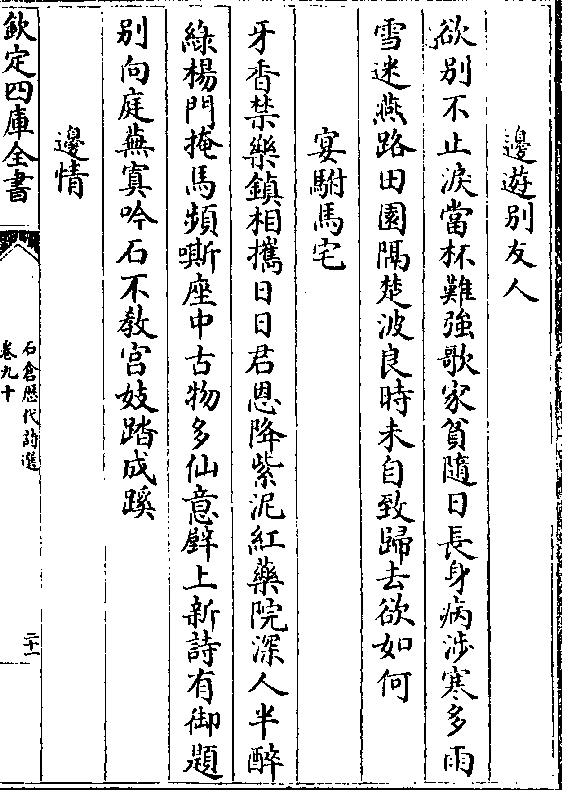 邊遊别友人
欲别不止淚當杯難強歌家貧隨日長身病涉寒多雨
雪迷燕路田園隔楚波良時未自致歸去欲如何
宴駙馬宅
牙香禁樂鎮相攜日日君恩降紫泥紅藥院深人半醉
綠楊門掩馬頻嘶座中古物多仙意壁上新詩有御題
别向庭蕪寘吟石不教宫妓踏成蹊
邊情
欽定四庫全書
石倉歷代詩選
卷九十
二十一